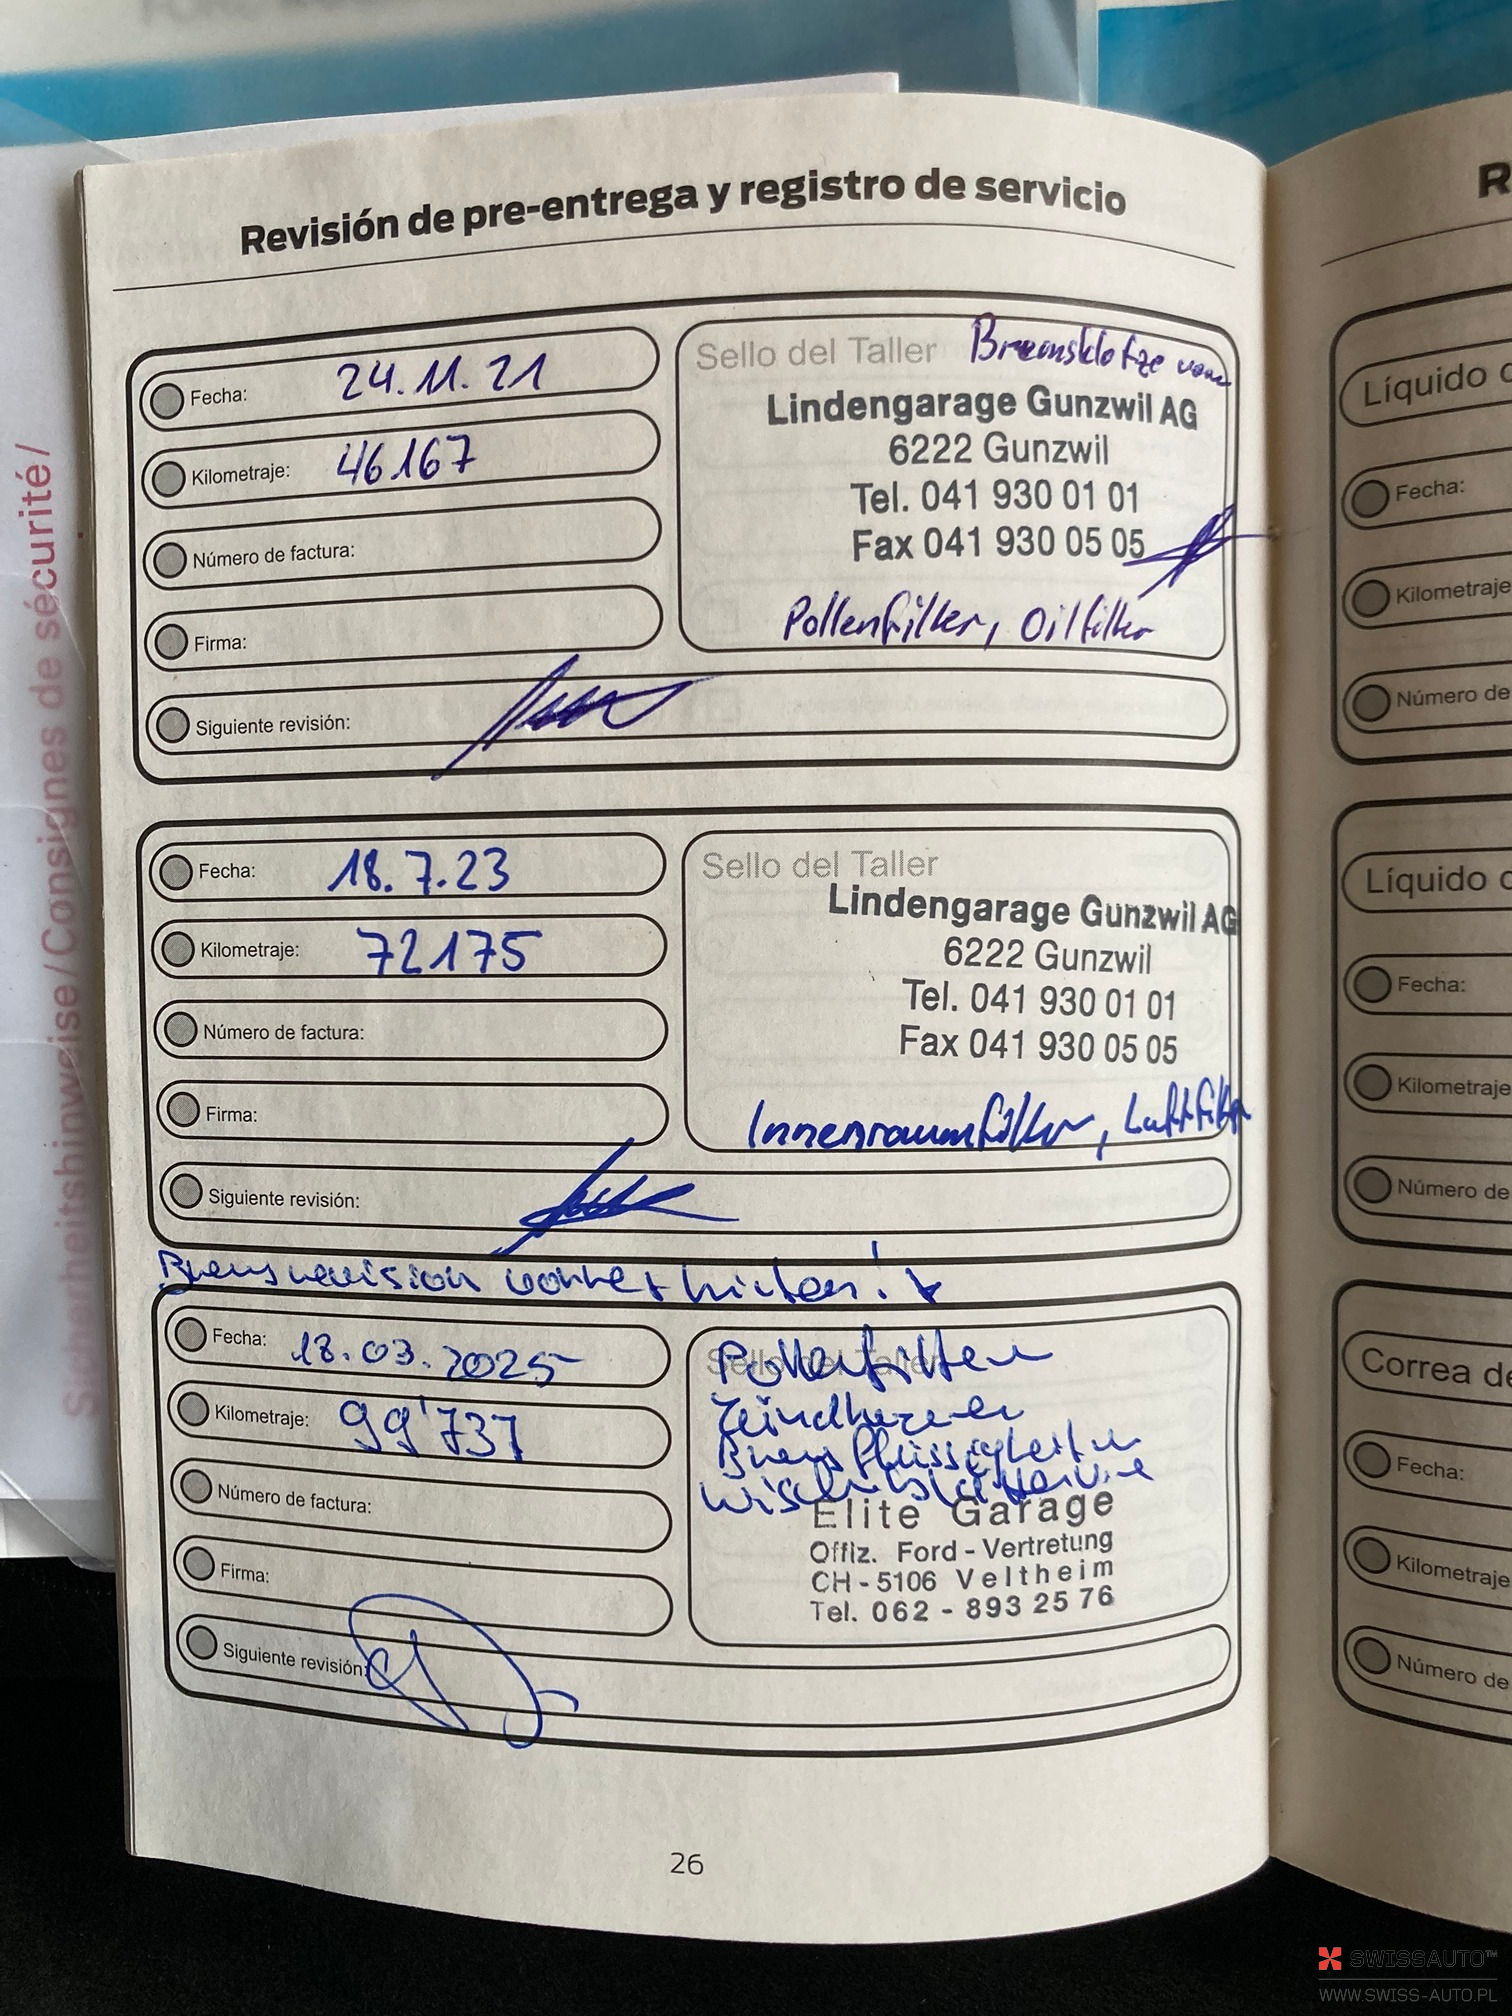 Revisión de pre-entrega y registro de servicio
Fecha: 24.11.21
Kilometraje: 46167
Número de factura:
Firma:
Siguiente revisión:
Sello del Taller Bremsklötze vorne
Lindengarage Gunzwil AG
6222 Gunzwil
Tel. 041 930 01 01
Fax 041 930 05 05
Pollenfilter, Oilfilter
Fecha: 18.7.23
Kilometraje: 72175
Número de factura:
Firma:
Siguiente revisión:
Sello del Taller
Lindengarage Gunzwil AG
6222 Gunzwil
Tel. 041 930 01 01
Fax 041 930 05 05
Innenraumfilter, Luftfilter
Bremsrevision vorne + hinten!
Fecha: 18.03.2025
Kilometraje: 99'737
Número de factura:
Firma:
Siguiente revisión:
Sello del Taller
Pollenfilter
Zündkerzen
Bremsflüssigkeit
Wischerblätter
Elite Garage
Offiz. Ford - Vertretung
CH - 5106 Veltheim
Tel. 062 - 893 25 76
26
R
Líquido
Fecha:
Kilometraje
Número de
Líquido
Fecha:
Kilometraje
Número de
Correa de
Fecha:
Kilometraje
Número de
Sicherheitshinweise / Consignes de sécurité /
SWISSAUTO™
WWW.SWISS-AUTO.PL